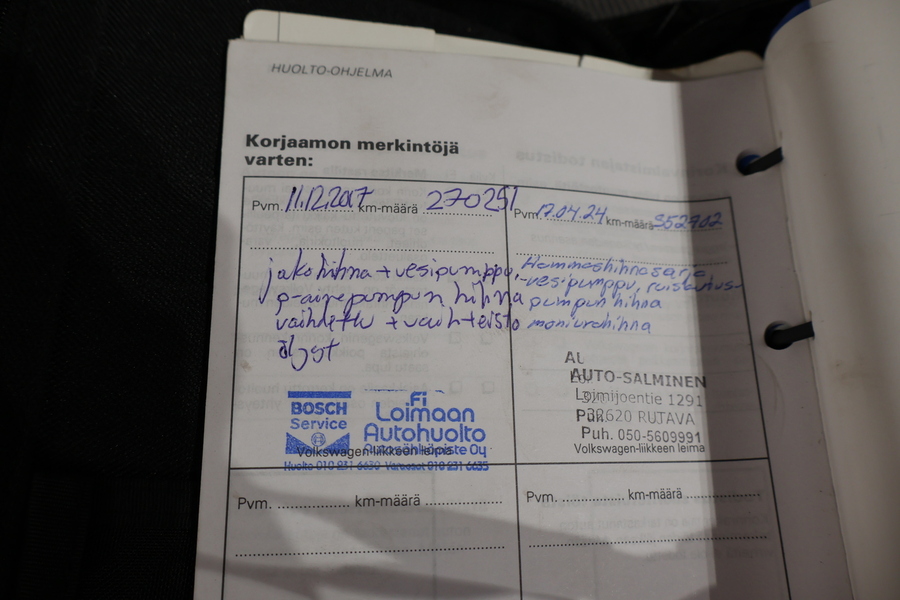 HUOLTO-OHJELMA
Korjaamon merkintöjä
varten:
Pvm. 11.12.2017 km-määrä 270251
jakohihna + vesipumppu,
p-airepumpun hihna
vaihdettu + vaihteisto
öljyt
BOSCH
Service
Loimaan
Autohuolto
Autosähköpiste Oy
Volkswagen-liikkeen leima
Huolto 010 231 6630 Varaosat 010 231 6635
Pvm. 17.04.24 km-määrä 352702
Hammashihnasarja
-vesipumppu, ruiskutus-
pumpun hihna
moniurahihna
AUTO-SALMINEN
Loimijoentie 1291
32620 RUTAVA
Puh. 050-5609991
Volkswagen-liikkeen leima
Pvm. km-määrä
Pvm. km-määrä